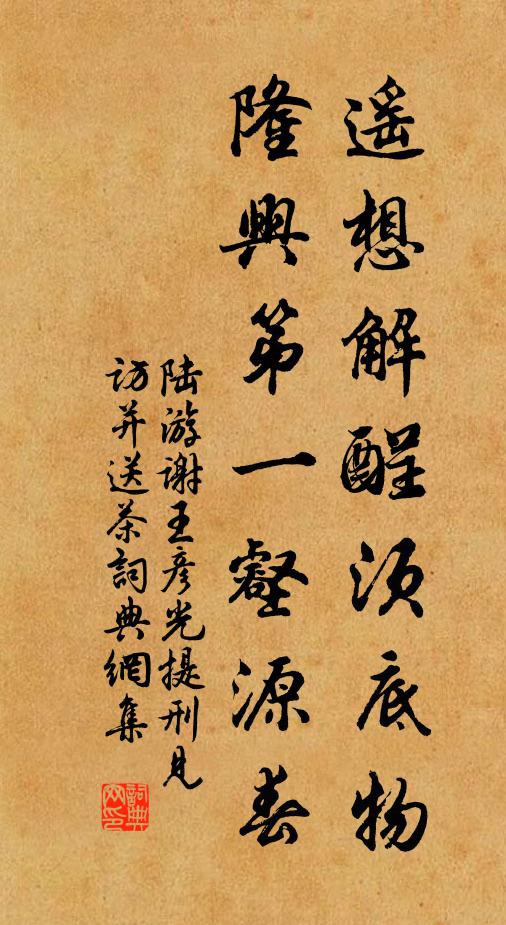 遥想解酲须底物
隆興第一壑源春
陆游谢王彦光提刑见
访并送茶詞典網集
詞典網印